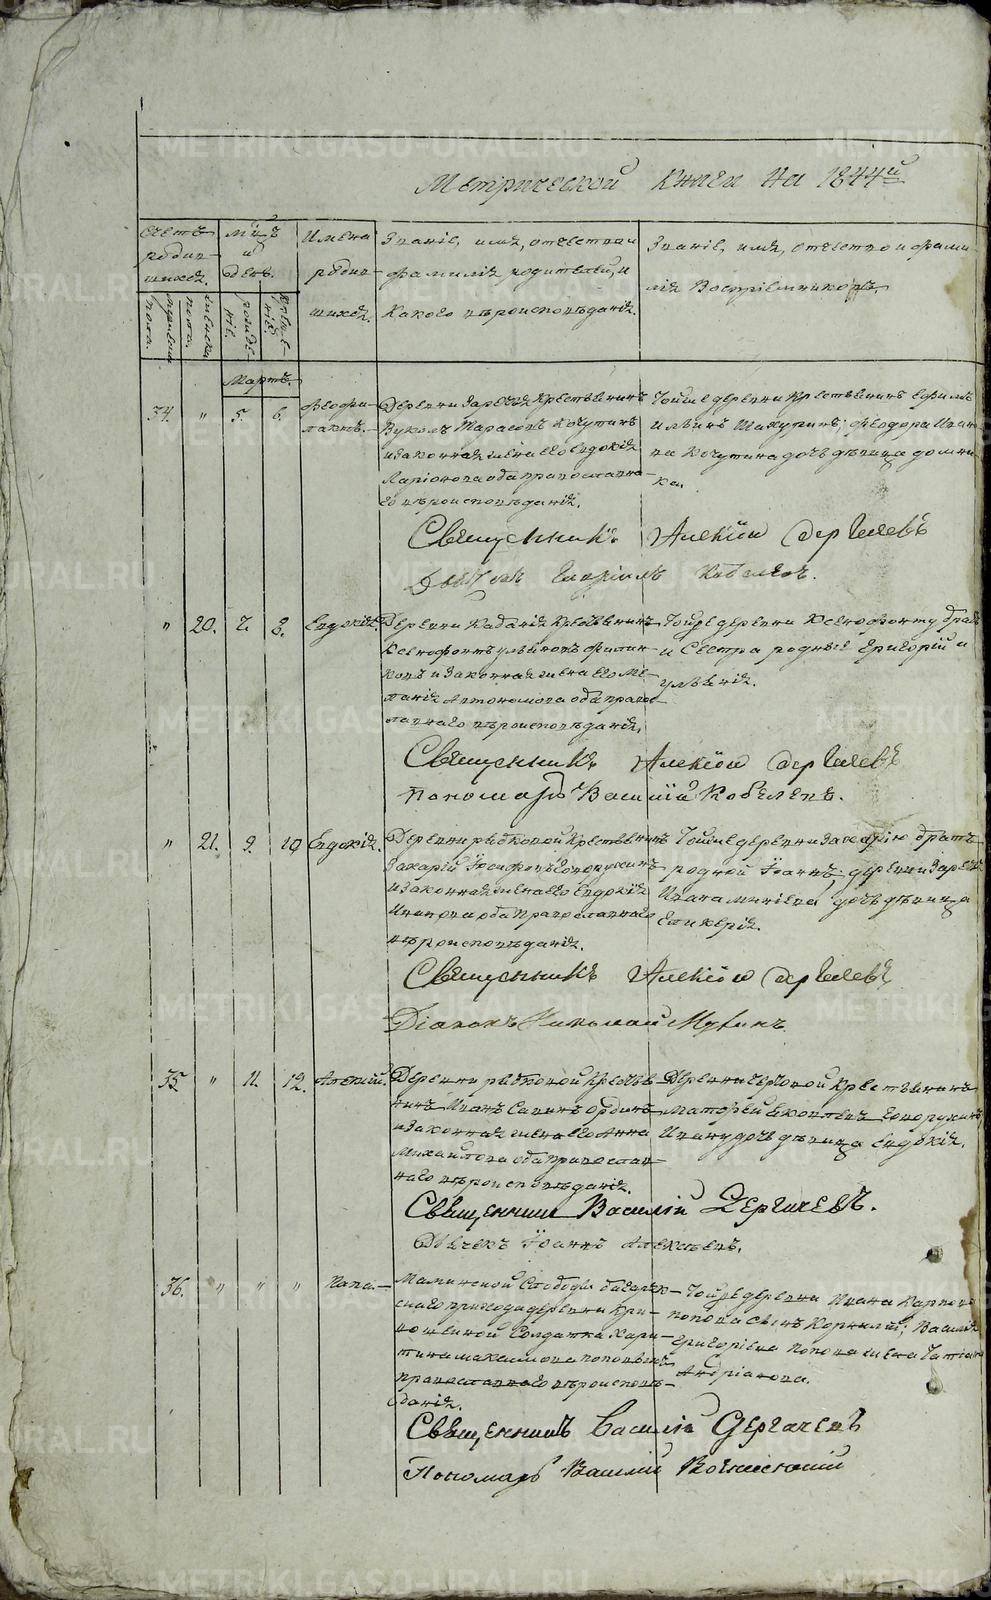 METRIKI.GASO-URAL.RU
Метрической книги на 1844й
Счетъ родившихся.
Мцъ и день.
Имена родившихся.
Званіе, имя, отчество и фамилія родителей, и какого вѣроисповѣданія.
Званіе, имя, отчество и фамилія Воспріемниковъ.
мужеска пола.
женска пола.
рожденія.
крещенія.
Мартъ.
34. " 5. 6. Феофилактъ.
Деревни Заречья Крестьянинъ
Вуколъ Тарасовъ Кочутинъ
и законная жена его Евдокія
Ларіонова оба православнаго вѣроисповѣданія.
Тойже деревни Крестьянинъ Ефимъ
Ильинъ Шахуринъ; Феодора Иванова Кочутина дочь дѣвица Домника.
Священникъ Алексій Дергачевъ
Дьячекъ Гавріилъ Кобелевъ.
" 20. 7. 8. Евдокія.
Деревни Кабанья Крестьянинъ
Ксенофонтъ Ульяновъ
и законная жена его Меланія Автономова оба православнаго вѣроисповѣданія.
Тойже деревни Ксенофонту братъ
и Сестра родные Григорій и
Священникъ Алексій Дергачевъ
Пономарь Василій Кобелевъ.
" 21. 9. 10 Евдокія.
Деревни рыбновой Крестьянинъ
Захарій Іосифовъ Говорухинъ
и законная жена его Евдокія
Иванова оба Православнаго
вѣроисповѣданія.
Тойже деревни Захарію братъ
родной Іоаннъ, деревни Заречья
Ивана Минѣева дочь дѣвица
Гликерія.
Священникъ Алексій Дергачевъ
Діаконъ Николай Мутинъ
35 " 11. 12. Алексій.
Деревни рыбновой Крестьянинъ Иванъ Савинъ Ординъ
и законная жена его Анна
Михайлова оба православнаго вѣроисповѣданія.
Деревни Крестьянинъ
Матфей Яковлевъ Говорухинъ
Ивану дочь дѣвица Евдокія.
Священникъ Василій Дергачевъ.
Дьячекъ Іоаннъ Алексѣевъ.
36. " " "
Маминской Слободы
прихода деревни
Солдатка Харитина Максимова
православнаго вѣроисповѣданія.
Тойже деревни Ивана Карпова
Попова сынъ Корнилій; Василія
Григорьева Попова жена Татіана
Андріанова.
Священникъ Василій Дергачевъ
Пономарь Василій